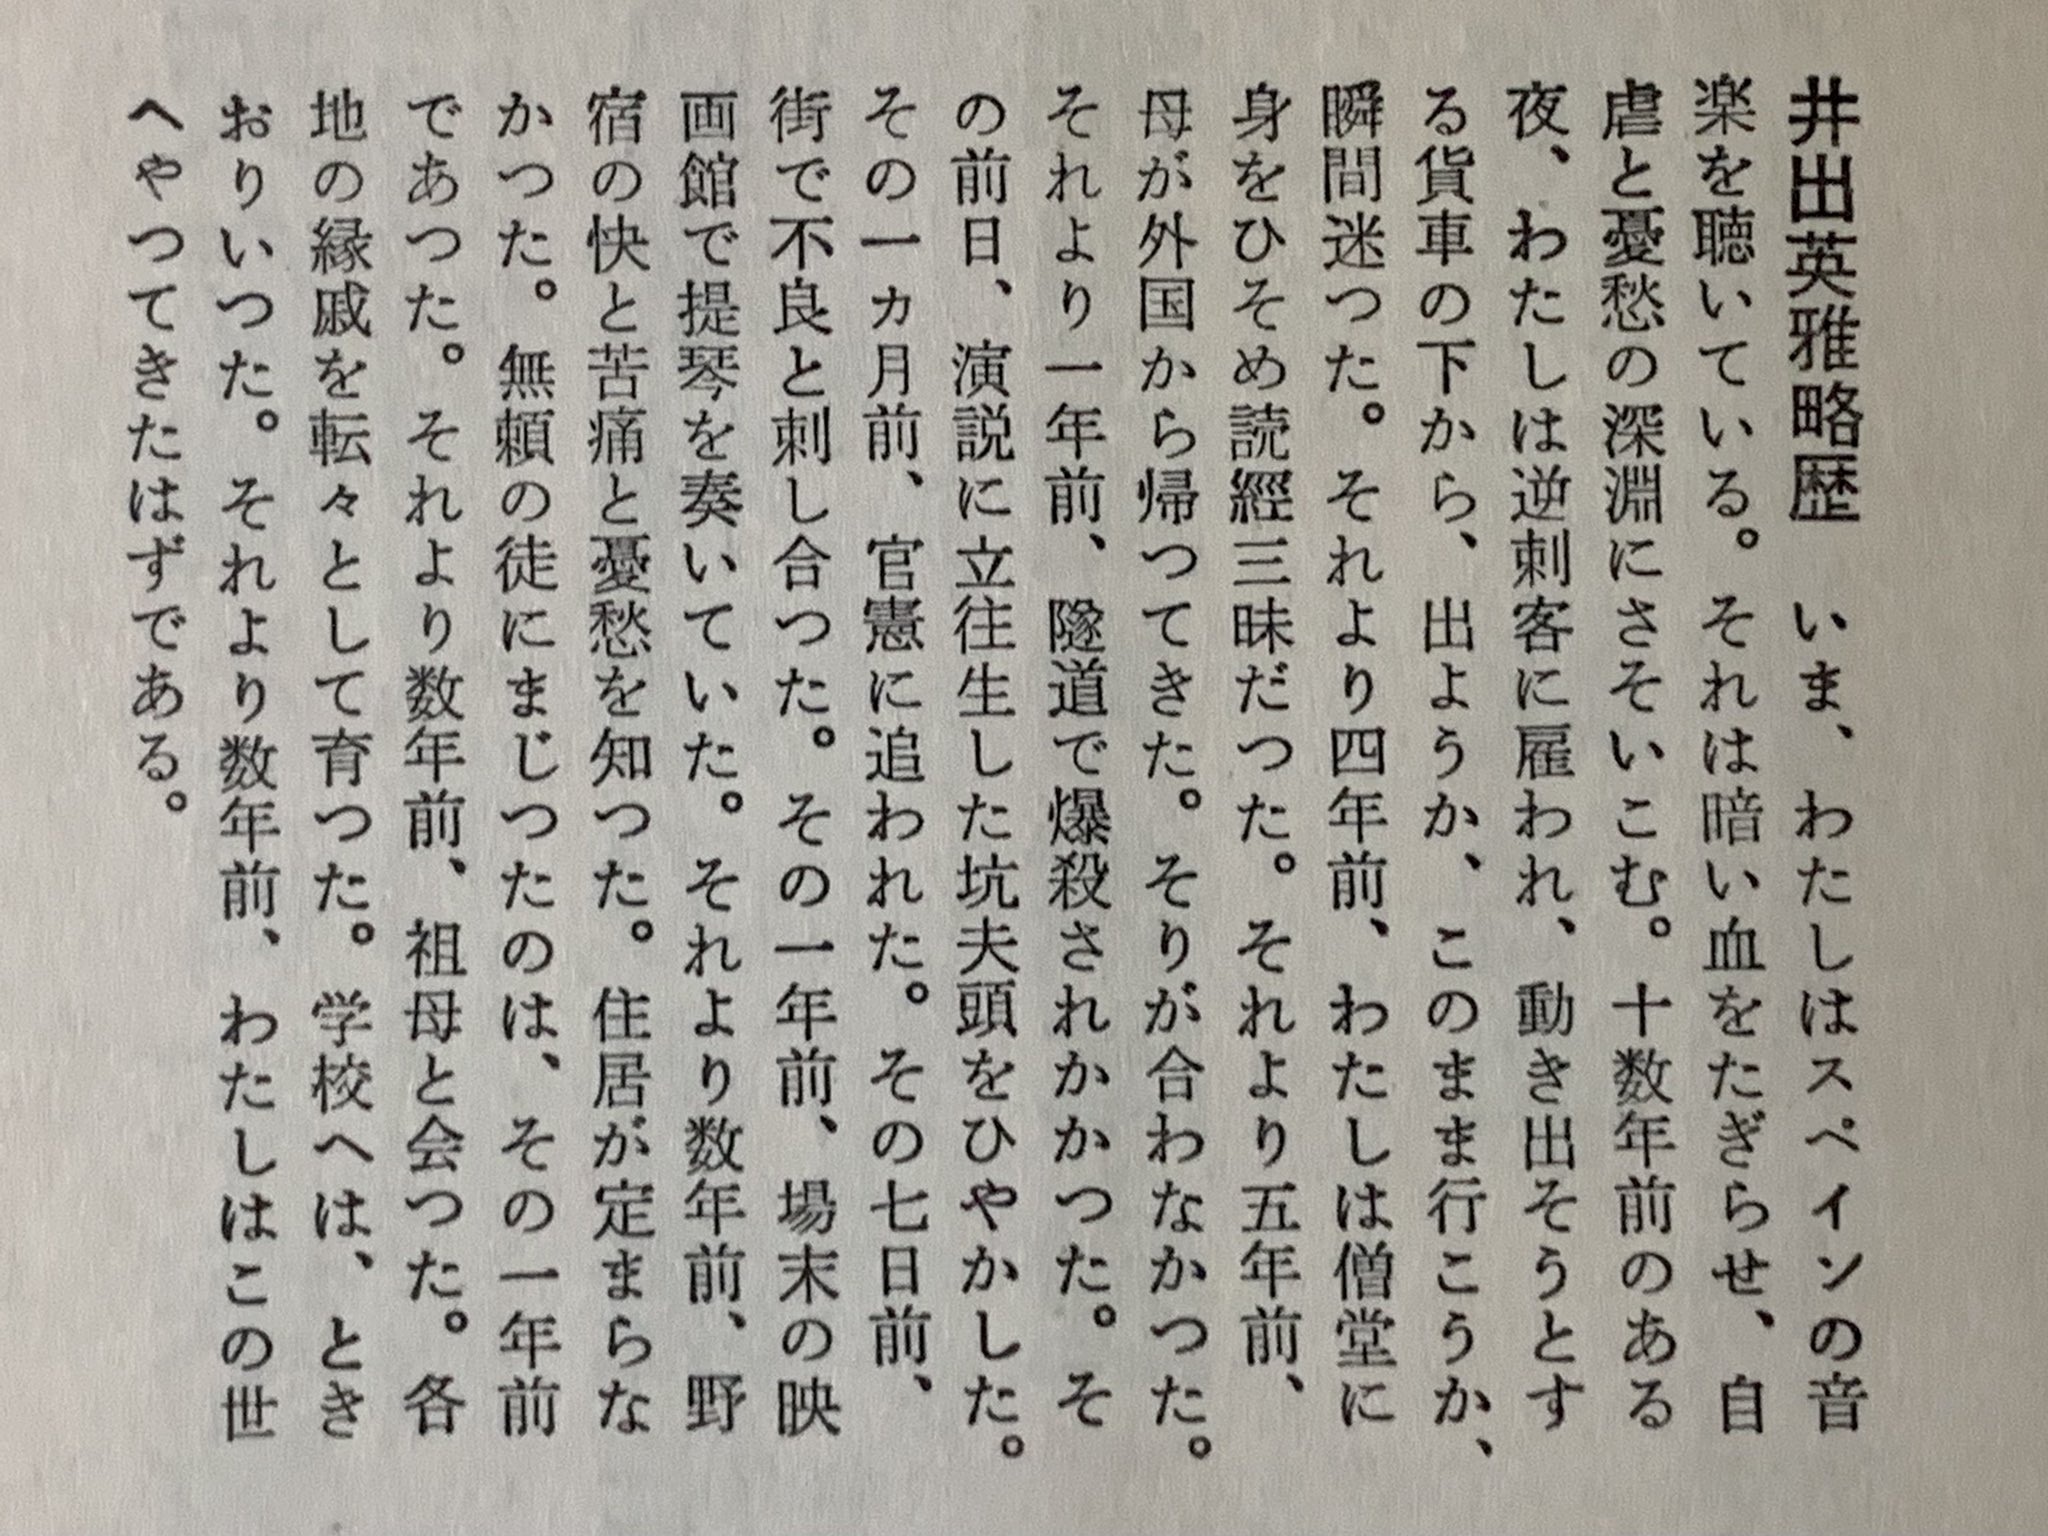 井出英雅略歴　いま、わたしはスペインの音
楽を聴いている。それは暗い血をたぎらせ、自
虐と憂愁の深淵にさそいこむ。十数年前のある
夜、わたしは逆刺客に雇われ、動き出そうとす
る貨車の下から、出ようか、このまま行こうか、
瞬間迷つた。それより四年前、わたしは僧堂に
身をひそめ読經三昧だつた。それより五年前、
母が外国から帰つてきた。そりが合わなかつた。
それより一年前、隧道で爆殺されかかつた。そ
の前日、演説に立往生した坑夫頭をひやかした。
その一ヵ月前、官憲に追われた。その七日前、
街で不良と刺し合つた。その一年前、場末の映
画館で提琴を奏いていた。それより数年前、野
宿の快と苦痛と憂愁を知つた。住居が定まらな
かつた。無頼の徒にまじつたのは、その一年前
であつた。それより数年前、祖母と会つた。各
地の縁戚を転々として育つた。学校へは、とき
おりいつた。それより数年前、わたしはこの世
へやつてきたはずである。